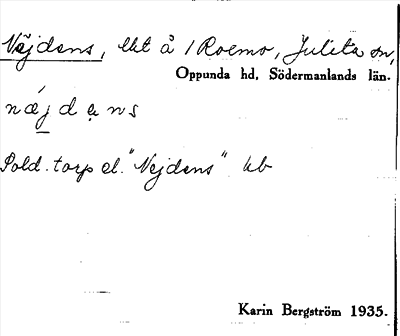 Näjdens, lht å 1 Roemo, Julita sn,
Oppunda hd. Södermanlands län.
næjdens
Sold. torp el. "Nejdens" kb
Karin Bergström 1935.